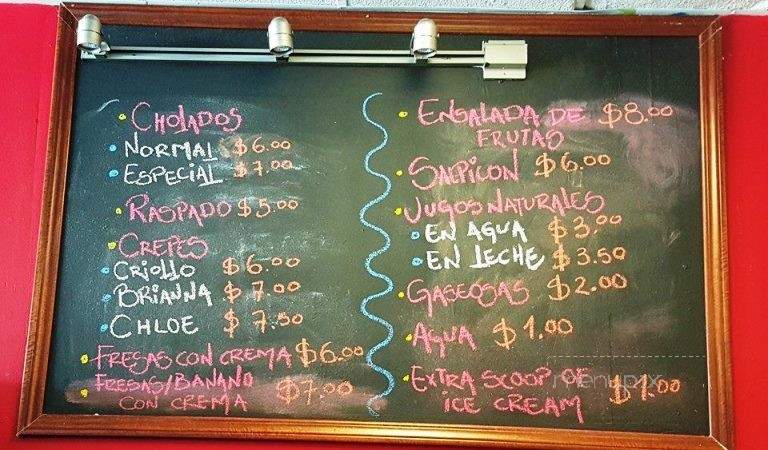 CHOLADOS
NORMAL $6.00
ESPECIAL $7.00
RASPADO $5.00
CREPES
CRIOLLO $6.00
BRIANNA $7.00
CHLOE $7.50
FRESAS CON CREMA $6.00
FRESAS/BANANO $7.00
CON CREMA
ENSALADA DE $8.00
FRUTAS
SALPICON $6.00
JUGOS NATURALES
EN AGUA $3.00
EN LECHE $3.50
GASEOSAS $2.00
AGUA $1.00
EXTRA SCOOP OF $1.00
ICE CREAM
menupix